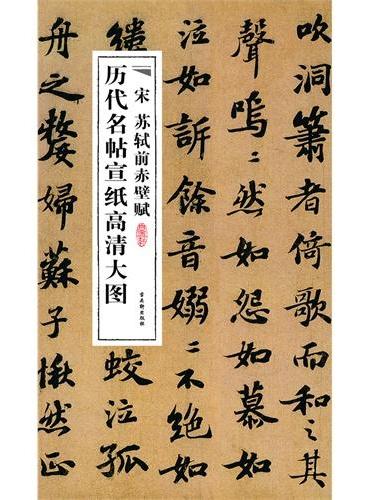 吹洞簫者倚歌而和之其
聲嗚〻然如怨如慕如
泣如訴餘音嫋〻不絕如
縷
蛟泣孤
舟之嫠婦蘇子愀然正
宋 苏轼前赤壁赋
历代名帖宣纸高清大图
古吴轩出版社